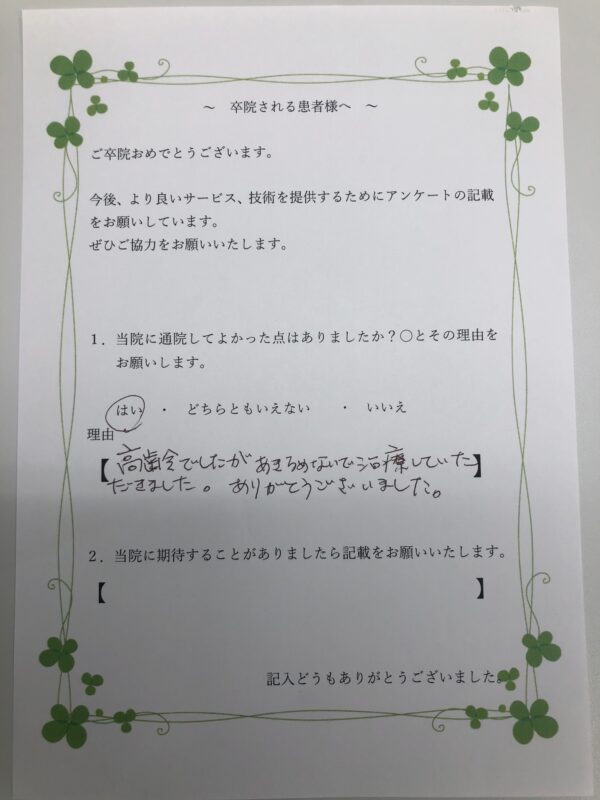 ～ 卒院される患者様へ ～
ご卒院おめでとうございます。
今後、より良いサービス、技術を提供するためにアンケートの記載
をお願いしています。
ぜひご協力をお願いいたします。
１．当院に通院してよかった点はありましたか？〇とその理由を
お願いします。
はい ・ どちらともいえない ・ いいえ
理由
【高齢でしたがあきらめないで治療していた】
だきました。ありがとうございました。
２．当院に期待することがありましたら記載をお願いいたします。
【 】
記入どうもありがとうございました。